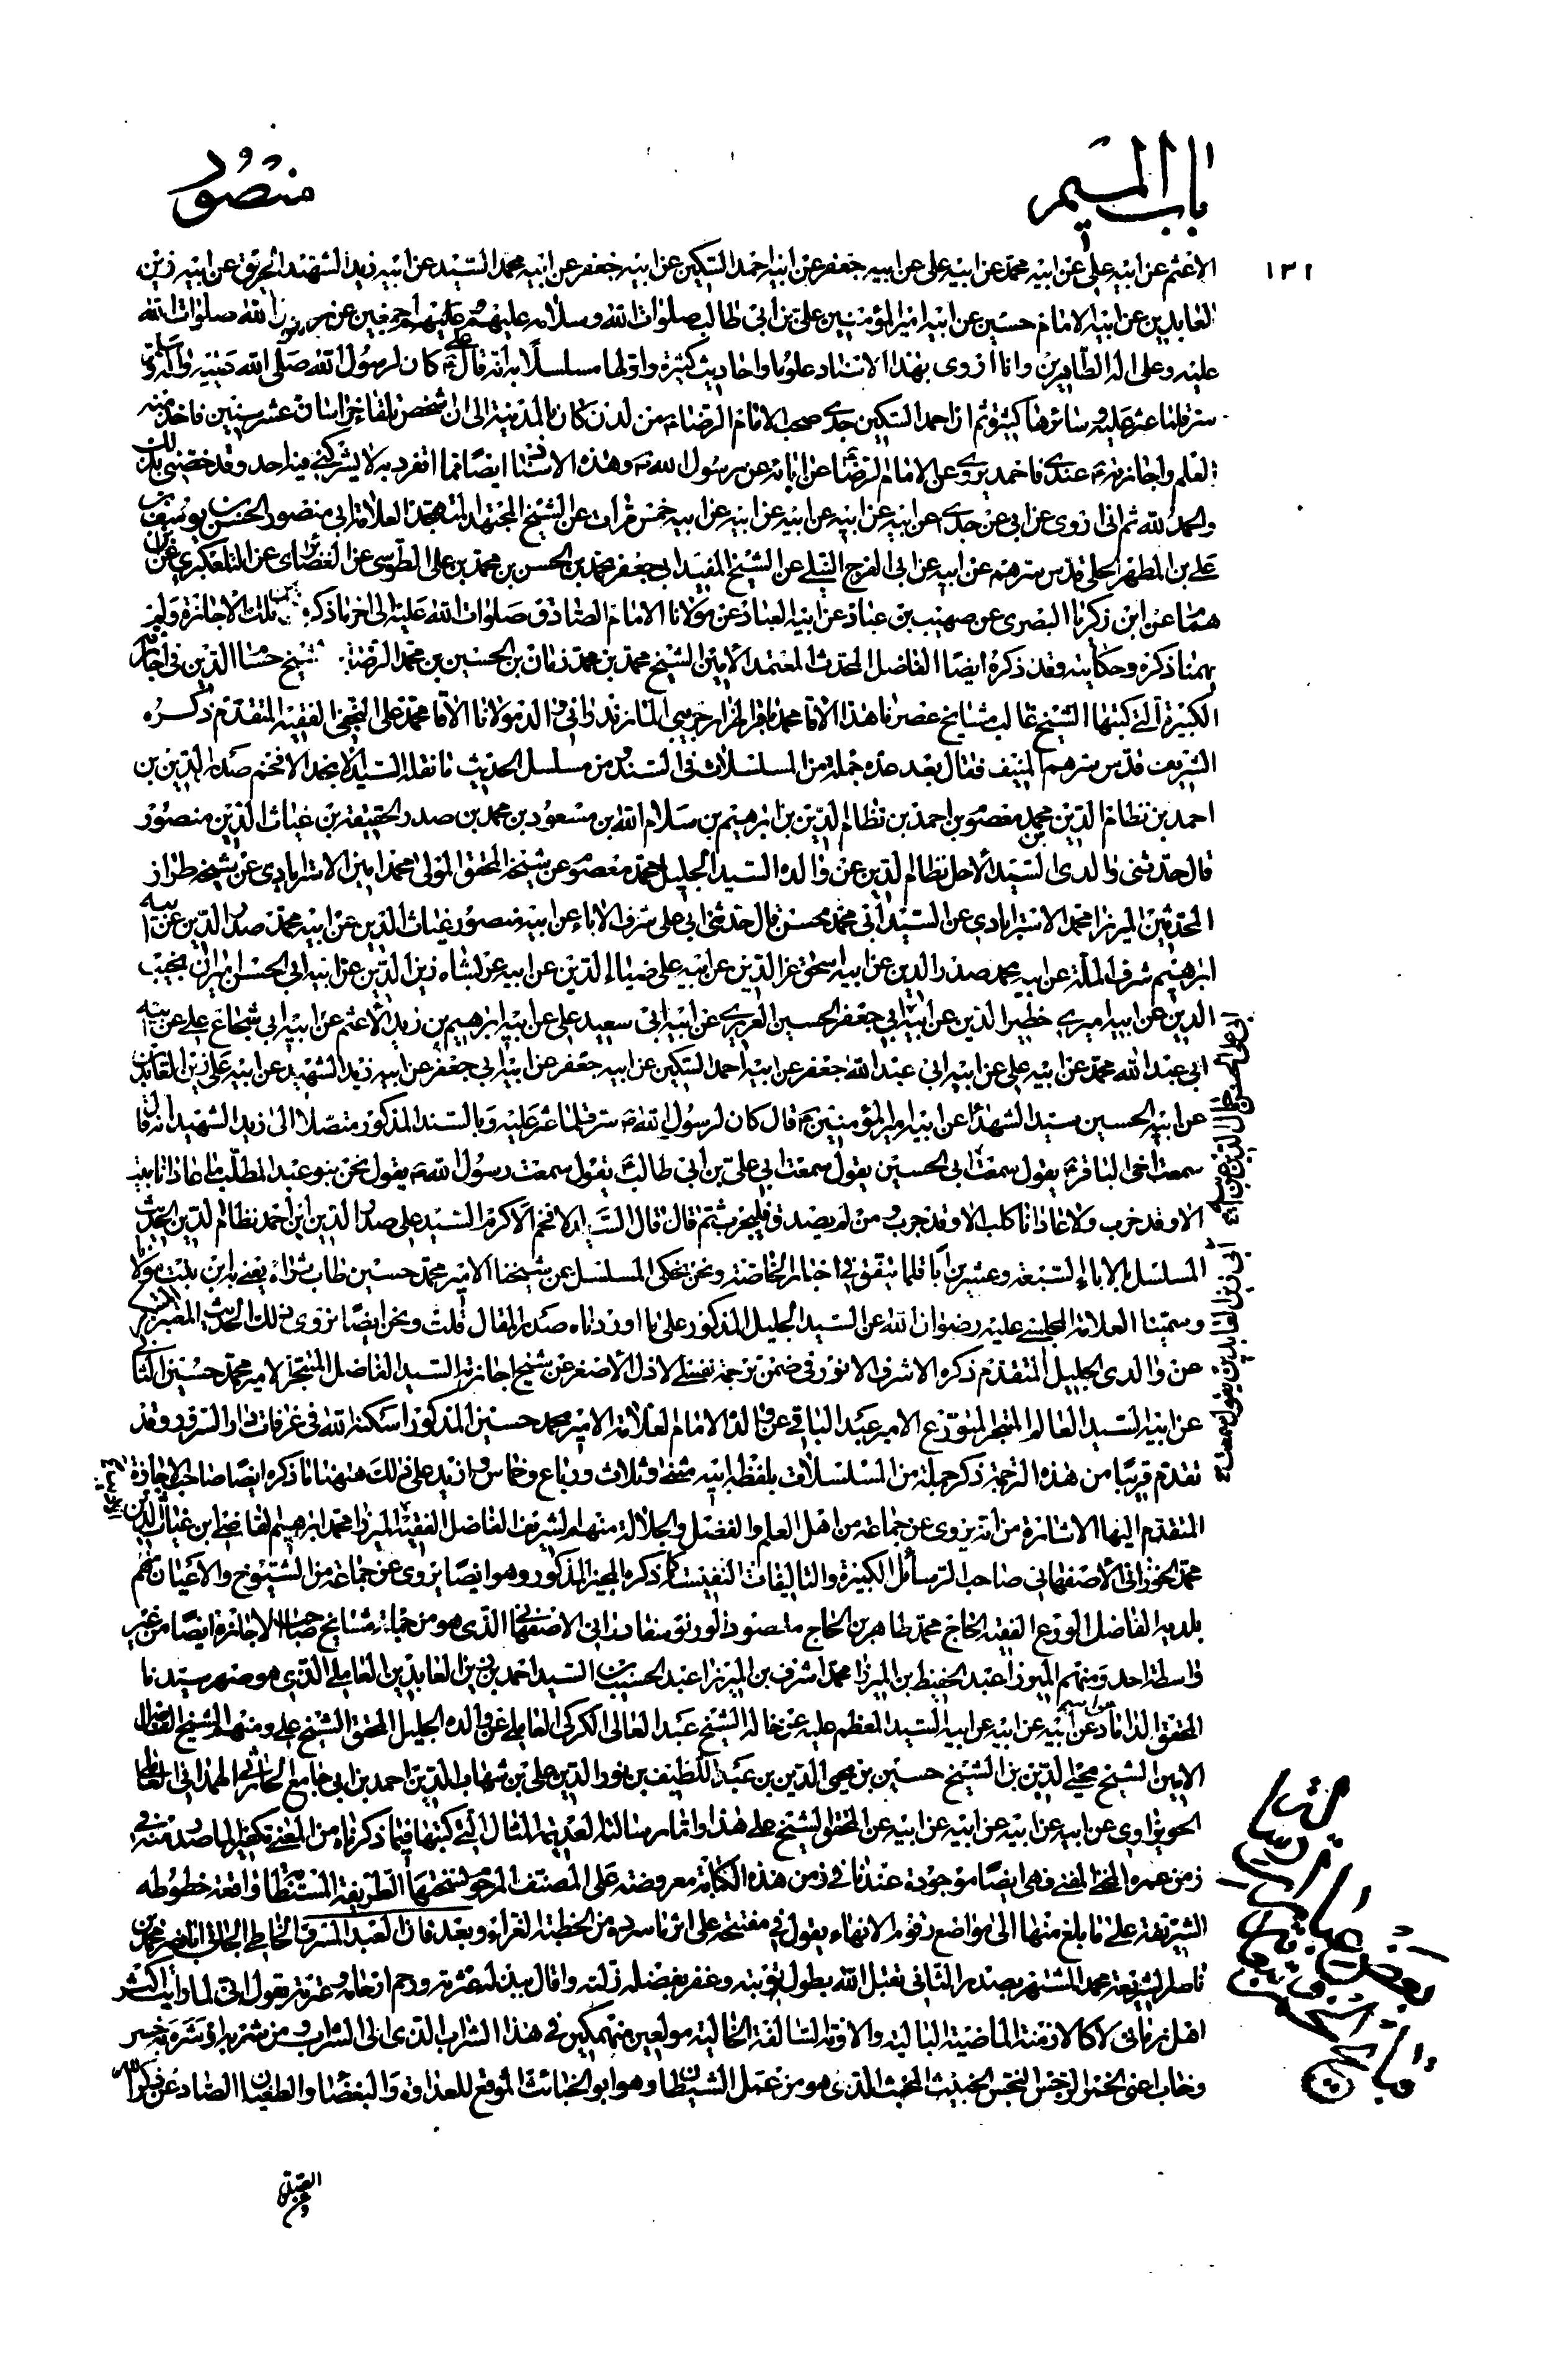 باب الميم
منصور
١٣١
الاعثم عن ابيه علي عن ابيه محمد عن ابيه علي عن ابيه جعفر عن ابيه احمد السكين عن ابيه جعفر عن ابيه محمد السيد عن ابيه زيد الشهيد الحريق عن ابيه زين
العابدين عن ابيه الامام حسين عن ابيه امير المؤمنين علي بن ابي طالب صلوات الله وسلامه عليهم اجمعين عن رسول الله صلوات الله
عليه وعلى اله الطاهرين وانا اروى بهذا الاسناد علوما واحاديث كثيرة واولها مسلسلا بانه قال علي كان لرسول الله صلى الله عليه واله وسلم
سر قلما عثر عليه وسائرها كثيرة ثم ان احمد السكين جدي صحب الامام الرضا من لدن كان بالمدينة الى ان شخص تلقاء خراسان عشر سنين فاخذ منه
العلم واجازته عندي فاحمد يروي عن الامام الرضا عن ابائه عن رسول الله ص وهذه الاسناد ايضا مما انفرد به لا يشركني فيه احد وقد خصني بذلك
والحمد لله ثم انى اروى عن ابي عن جدي عن ابيه عن ابيه عن ابيه عن ابيه عن ابيه خمس مرات عن الشيخ المجتهد العلامة ابي منصور الحسن بن يوسف بن
علي بن المطهر الحلي قدس سرهم عن ابيه عن ابي الفرج النيلي عن الشيخ المفيد ابي جعفر محمد بن الحسن بن محمد بن علي الطوسي عن الغضائرى عن التلعكبري عن
همام عن ابن زكريا البصرى عن صهيب بن عباد عن ابيه العباد عن مولانا الامام الصادق صلوات الله عليه الى اخر ما ذكره تلك الاجازة
بهمنا ذكره وحكايته وقد ذكره ايضا الفاضل المحدث المعتمد الامين الشيخ محمد بن محمد زمان بن الحسين بن محمد الرضا شيخ حسام الدين في اجازته
الكبيرة التي كتبها الشيخ غالب مشايخ عصرنا هذا الاقا محمد باقر الهزار جريبي المازندراني والد مولانا الاقا محمد علي النجفي الفقيه المتقدم ذكره
الشريف قدس سرهم المنيف فقال بعد عده جملة من المسلسلات في السند ومن مسلسل الحديث ما نقله السيد الامجد الافخم صدر الدين بن
احمد بن نظام الدين محمد معصوم بن احمد بن نظام الدين بن ابرهيم بن سلام الله بن مسعود بن محمد بن صدر الحقيقة بن غياث الدين منصور
قال حدثني والدى السيد الاجل نظام الدين عن والده السيد الجليل احمد معصوم عن شيخه المحقق المولى محمد امين الاسترابادي عن شيخه طراز
المحدثين الميرزا محمد الاسترابادي عن السيد ابي محمد محسن قال حدثني ابي علي شرف الاباء عن ابيه منصور غياث الدين عن ابيه محمد صدر الدين عن ابيه
ابرهيم شرف الملة عن ابيه محمد صدر الدين عن ابيه اسحق عز الدين عن ابيه علي ضياء الدين عن ابيه عربشاه زين الدين عن ابيه ابي الحسن اميران نجيب
الدين عن ابيه اميري خطير الدين عن ابيه ابي جعفر الحسين العزيزي عن ابيه ابي سعيد علي عن ابيه ابرهيم بن زيد الاعثم عن ابيه ابي شجاع علي عن ابيه
ابي عبد الله محمد عن ابيه علي عن ابيه ابي عبد الله جعفر عن ابيه احمد السكين عن ابيه جعفر عن ابيه ابي جعفر عن ابيه زيد الشهيد عن ابيه علي زين العابدين
عن ابيه الحسين سيد الشهداء عن ابيه امير المؤمنين ع قال كان لرسول الله ص سر قلما عثر عليه وبالسند المذكور متصلا الى زيد الشهيد انه قال
سمعت اخي الباقر ع يقول سمعت ابي الحسين يقول سمعت ابي علي بن ابي طالب ع يقول سمعت رسول الله ص يقول نحن بنو عبد المطلب ما عادانا بيت
الا وقد خرب ولا عادانا كلب الا وقد جرب ومن لم يصدق فليجرب ثم قال قال السيد الافخم الاكرم السيد علي صدر الدين ابن احمد نظام الدين الحديث
المسلسل بالاباء السبعة وعشرين ابا قلما يتفق في اخبار الخاصة ونحن نحكى المسلسل عن شيخنا الامير محمد حسين طاب ثراه يعني به ابن بنت مولانا
وسمينا العلامة المجلسي عليه رضوان الله عن السيد الجليل المذكور على ما اوردناه صدر المقال قلت ونحن ايضا نروى ذلك الحديث
عن والدى الجليل المتقدم ذكره الاشرف الانور في ضمن ترجمة نفسي الاذل الاصغر عن شيخ اجازته السيد الفاضل المتبحر الامير محمد حسين الثاني
عن ابيه السيد العالم المتبحر المتورع الامير عبد الباقي عن والده الامام العلامة الامير محمد حسين المذكور اسكنه الله في غرفات دار السرور وقد
تقدم قريبا من هذه الترجمة ذكر جملة من المسلسلات بلفظ ابيه مثنى وثلاث ورباع وخماس وازيد على ذلك ههنا ما ذكره ايضا صاحب الاجازة
المتقدم اليها الاشارة من انه يروى عن جماعة من اهل العلم والفضل والجلالة منهم الشريف الفاضل الفقيه الميرزا محمد ابرهيم القاضي ابن غياث الدين
محمد الخوزانى الاصفهانى صاحب الرسائل الكبيرة والتاليفات النفيسة كما ذكره المجيز المذكور وهو ايضا يروى عن جماعة من الشيوخ والاعيان منهم
بلديه الفاضل الورع الفقيه الحاج محمد طاهر بن الحاج مقصود الاصفهاني الذى هو من جملة مشايخ صاحب الاجازة ايضا من غير
واسطة احد ومنهم الميرزا عبد الحفيظ بن الميرزا محمد اشرف بن الميرزا عبد الحسيب بن السيد احمد بن زين العابدين العاملي الذى هو صهر سيدنا
المحقق الداماد عن ابيه عن ابيه عن ابيه السيد المعظم عليه عن خاله الشيخ عبد العالى الكركى العاملي عن والده الجليل المحقق الشيخ علي ومنهم الشيخ الفاضل
الامين الشيخ محيي الدين بن الشيخ حسين بن محيى الدين بن عبد اللطيف بن نور الدين علي بن شهاب الدين احمد بن ابي جامع الحارثي الهمداني العاملي
الحويزاوى عن ابيه عن ابيه عن ابيه عن ابيه عن المحقق الشيخ علي هذا واما رسالته العديمة المثال التي كتبها فيما ذكرناه من المعنى تكفيرا لما صدر منه في
زمن عمره المفنى فهى ايضا موجودة عندنا في زمن هذه الكتابة معروضة على المصنف المرحوم
الشريفة على ما بلغ منها الى مواضع رقوم الانهاء يقول في مفتتحه على اثر ما سرده من الخطبة الغراء وبعد فان العبد المسرف الخاطي الجانى
ناصر الشريعة محمد المشتهر بصدر الثانى تقبل الله بطول توبته وغفر بفضله زلته واقال بمنه عثرته ورحم يقول انى لما رايت اكثر
اهل زمانى لا كالازمنة الماضية البالية والاوقات السالفة الخالية مولعين منهمكين في هذا الشراب الذى اى الشراب ومن شربه خسر
وخاب اعنى الخمر الرجس النجس الخبيث المخبث الذى هو من عمل الشيطان وهو ابو الخبائث الموقع للعداوة والبغضاء والطغيان الصاد عن ذكر الله